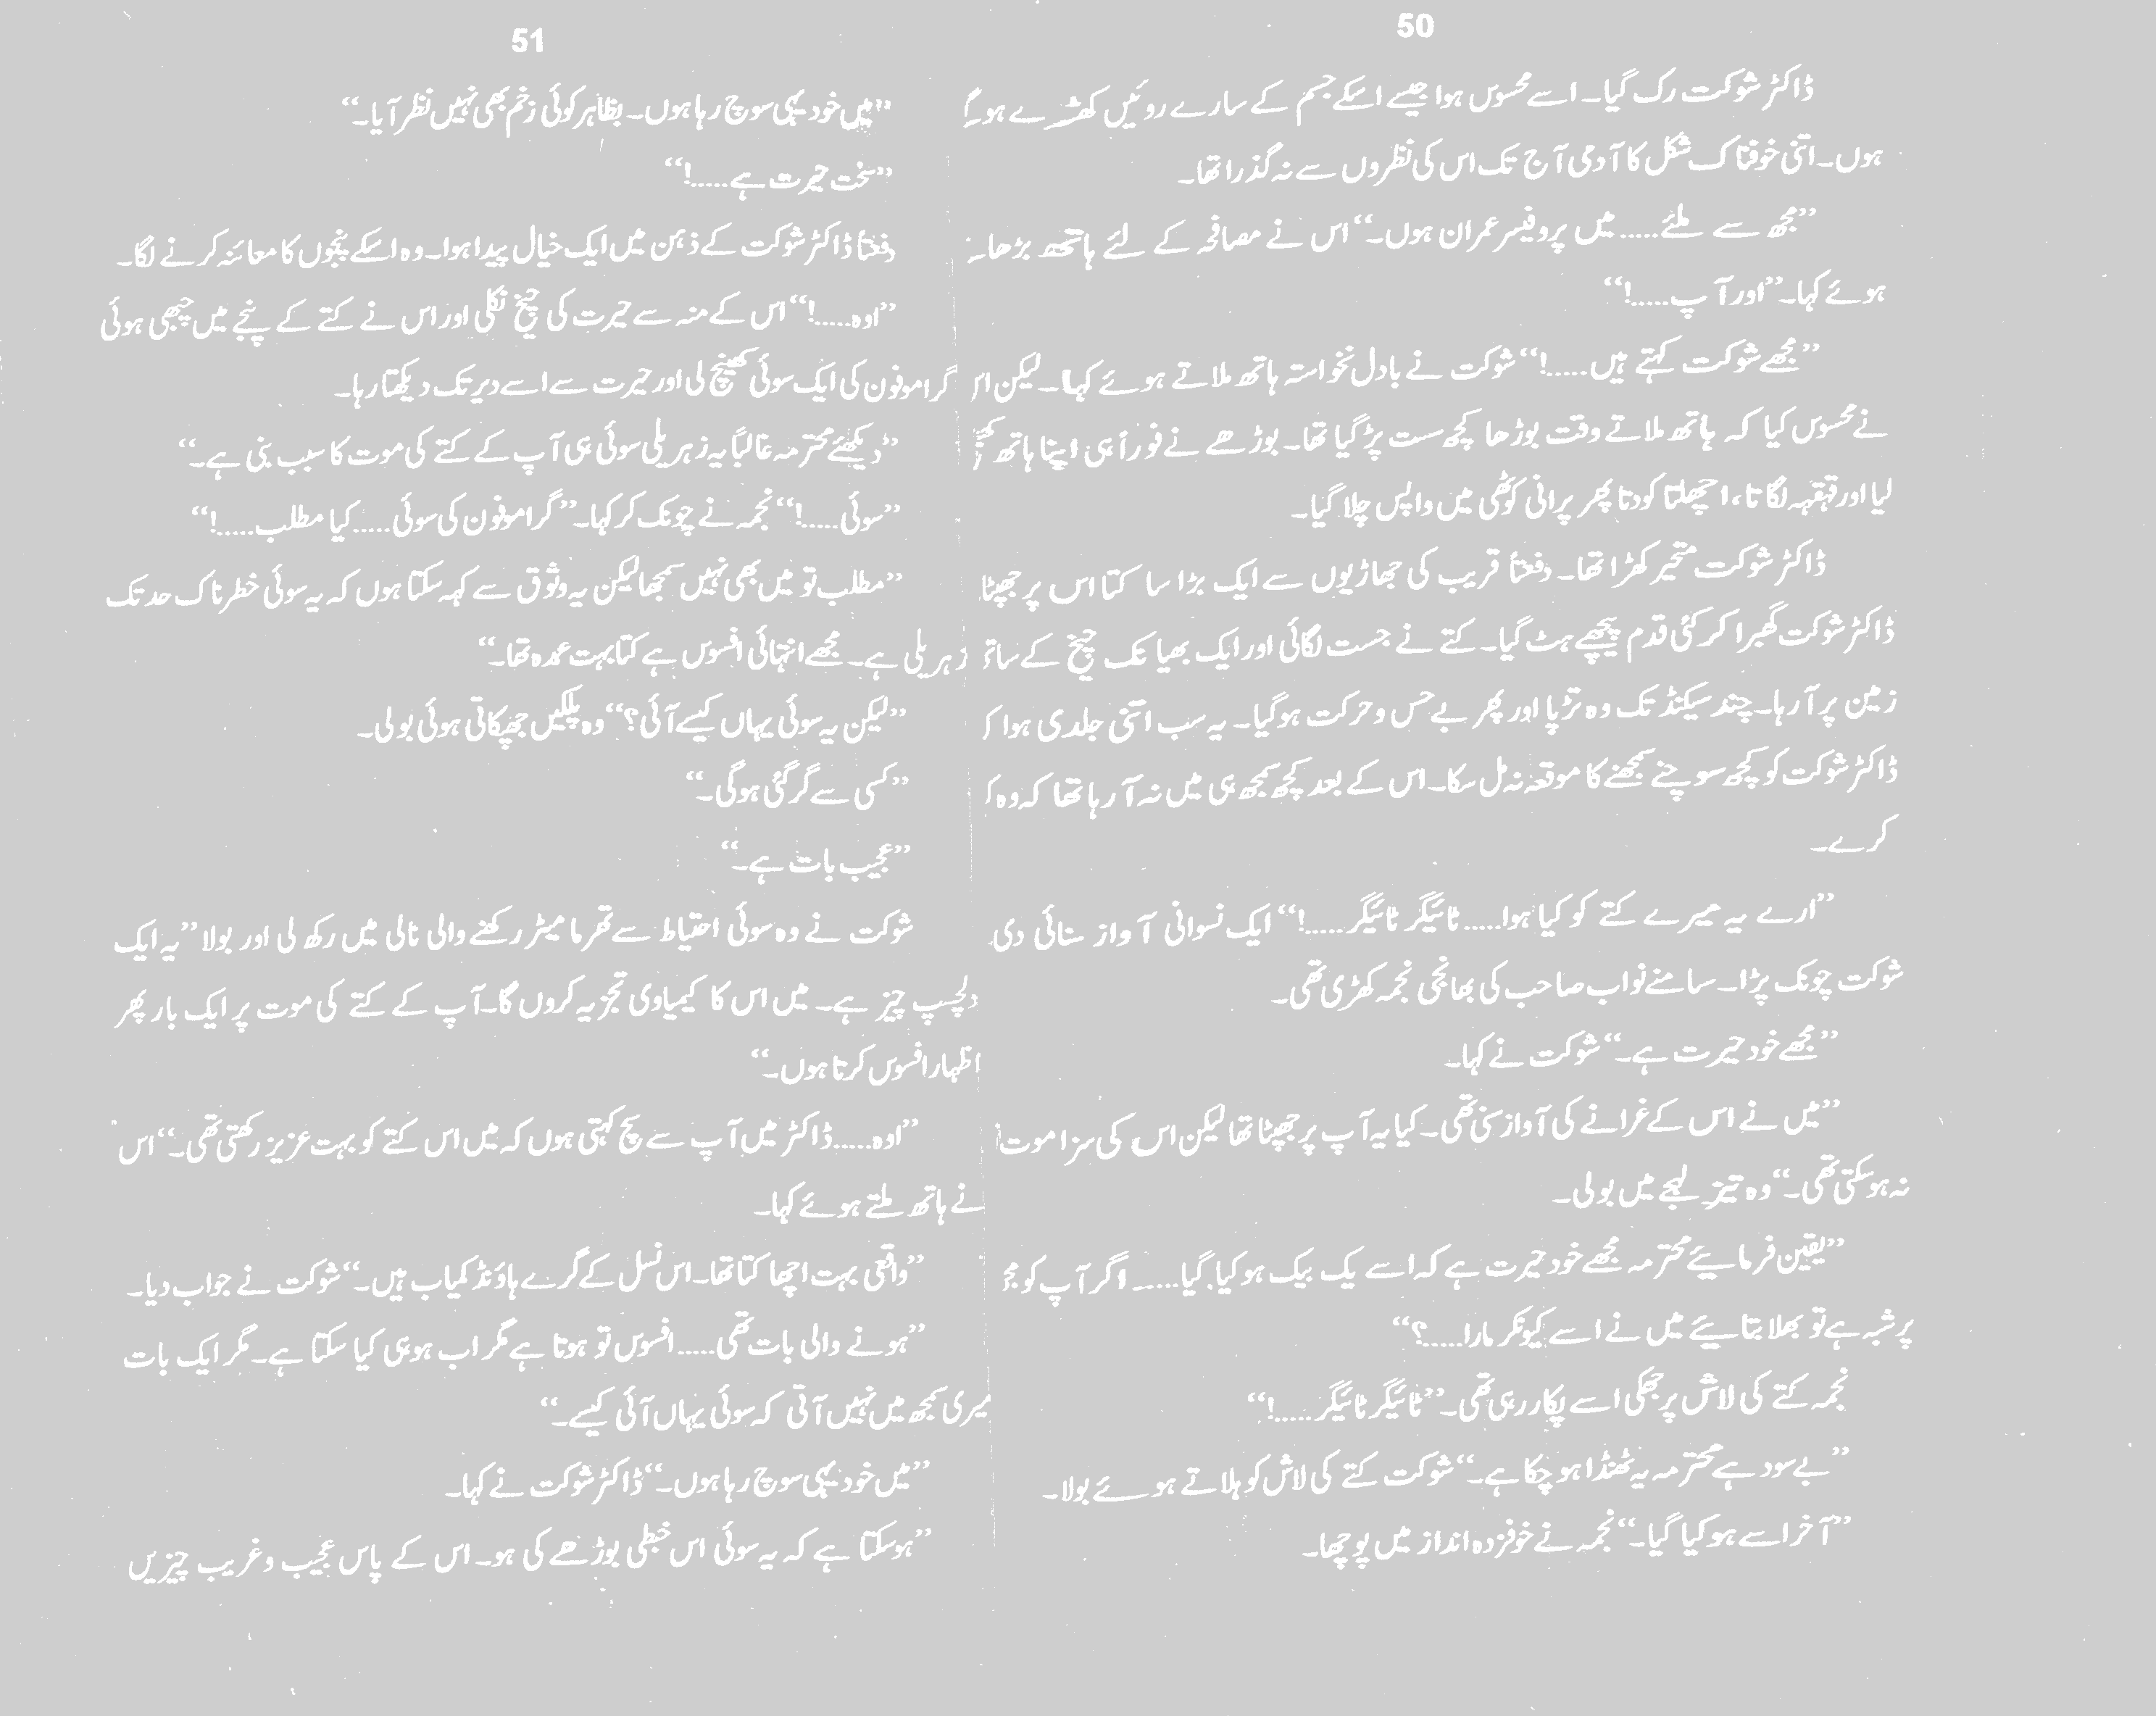 50
ڈاکٹر شوکت رک گیا۔ اسے محسوس ہوا جیسے اسکے جسم کے سارے روئیں کھڑے ہو گئے
ہوں۔ اتنی خوفناک شکل کا آدمی آج تک اس کی نظروں سے نہ گزرا تھا۔
”مجھ سے ملئے...... میں پروفیسر عمران ہوں۔“ اس نے مصافحہ کے لئے ہاتھ بڑھا۔
ہوئے کہا۔ ”اور آپ......!“
”مجھے شوکت کہتے ہیں......!“ شوکت نے بادل نخواستہ ہاتھ ملاتے ہوئے کہا۔ لیکن اس
نے محسوس کیا کہ ہاتھ ملاتے وقت بوڑھا کچھ سست پڑ گیا تھا۔ بوڑھے نے فوراً ہی اپنا ہاتھ کھینچ
لیا اور قہقہہ لگاتا، اچھلتا کودتا پھر پرانی کوٹھی میں واپس چلا گیا۔
ڈاکٹر شوکت متحیر کھڑا تھا۔ دفعتاً قریب کی جھاڑیوں سے ایک بڑا سا کتا اس پر جھپٹا
ڈاکٹر شوکت گھبرا کر کئی قدم پیچھے ہٹ گیا۔ کتے نے جست لگائی اور ایک بھیانک چیخ کے ساتھ
زمین پر آ رہا۔ چند سیکنڈ تک وہ تڑپا اور پھر بے حس و حرکت ہو گیا۔ یہ سب اتنی جلدی ہوا کہ
ڈاکٹر شوکت کو کچھ سوچنے سمجھنے کا موقعہ نہ مل سکا۔ اس کے بعد کچھ سمجھ ہی میں نہ آ رہا تھا کہ وہ کیا
کرے۔
”ارے یہ میرے کتے کو کیا ہوا...... ٹائیگر ٹائیگر......!“ ایک نسوانی آواز سنائی دی
شوکت چونک پڑا۔ سامنے نواب صاحب کی بھانجی نجمہ کھڑی تھی۔
”مجھے خود حیرت ہے۔“ شوکت نے کہا۔
”میں نے اس کے غرانے کی آواز سنی تھی۔ کیا یہ آپ پر جھپٹا تھا لیکن اس کی سزا موت تو
نہ ہو سکتی تھی۔“ وہ تیز لہجے میں بولی۔
”یقین فرمائیے محترمہ مجھے خود حیرت ہے کہ اسے یک بیک ہو کیا گیا...... اگر آپ کو مجھ
پر شبہ ہے تو بھلا بتائیے میں نے اسے کیونکر مارا......؟“
نجمہ کتے کی لاش پر جھکی اسے پکار رہی تھی۔ ”ٹائیگر ٹائیگر......!“
”بے سود ہے محترمہ یہ ٹھنڈا ہو چکا ہے۔“ شوکت کتے کی لاش کو ہلاتے ہوئے بولا۔
”آخر اسے ہو کیا گیا۔“ نجمہ نے خوفزدہ انداز میں پوچھا۔
51
”میں خود یہی سوچ رہا ہوں۔ بظاہر کوئی زخم بھی نہیں نظر آیا۔“
”سخت حیرت ہے......!“
دفعتاً ڈاکٹر شوکت کے ذہن میں ایک خیال پیدا ہوا۔ وہ اسکے پنجوں کا معائنہ کرنے لگا۔
”اوہ......!“ اس کے منہ سے حیرت کی چیخ نکلی اور اس نے کتے کے پنجے میں چبھی ہوئی
گراموفون کی ایک سوئی کھینچ لی اور حیرت سے اسے دیر تک دیکھتا رہا۔
”دیکھئے محترمہ غالباً یہ زہریلی سوئی ہی آپ کے کتے کی موت کا سبب بنی ہے۔“
”سوئی......!“ نجمہ نے چونک کر کہا۔ ”گراموفون کی سوئی...... کیا مطلب......!“
”مطلب تو میں بھی نہیں سمجھا لیکن یہ وثوق سے کہہ سکتا ہوں کہ یہ سوئی خطرناک حد تک
زہریلی ہے۔ مجھے انتہائی افسوس ہے کتا بہت عمدہ تھا۔“
”لیکن یہ سوئی یہاں کیسے آئی؟“ وہ پلکیں جھپکاتی ہوئی بولی۔
”کسی سے گر گئی ہوگی۔“
”عجیب بات ہے۔“
شوکت نے وہ سوئی احتیاط سے تھرمامیٹر رکھنے والی نالی میں رکھ لی اور بولا ”یہ ایک
دلچسپ چیز ہے۔ میں اس کا کیمیاوی تجزیہ کروں گا۔ آپ کے کتے کی موت پر ایک بار پھر
اظہار افسوس کرتا ہوں۔“
”اوہ...... ڈاکٹر میں آپ سے سچ کہتی ہوں کہ میں اس کتے کو بہت عزیز رکھتی تھی۔“ اس
نے ہاتھ ملتے ہوئے کہا۔
”واقعی بہت اچھا کتا تھا۔ اس نسل کے گرے ہاؤنڈ کمیاب ہیں۔“ شوکت نے جواب دیا۔
”ہونے والی بات تھی...... افسوس تو ہوتا ہے مگر اب ہو ہی کیا سکتا ہے۔ مگر ایک بات
میری سمجھ میں نہیں آتی کہ سوئی یہاں آئی کیسے۔“
”میں خود یہی سوچ رہا ہوں۔“ ڈاکٹر شوکت نے کہا۔
”ہو سکتا ہے کہ یہ سوئی اس خبطی بوڑھے کی ہو۔ اس کے پاس عجیب و غریب چیزیں